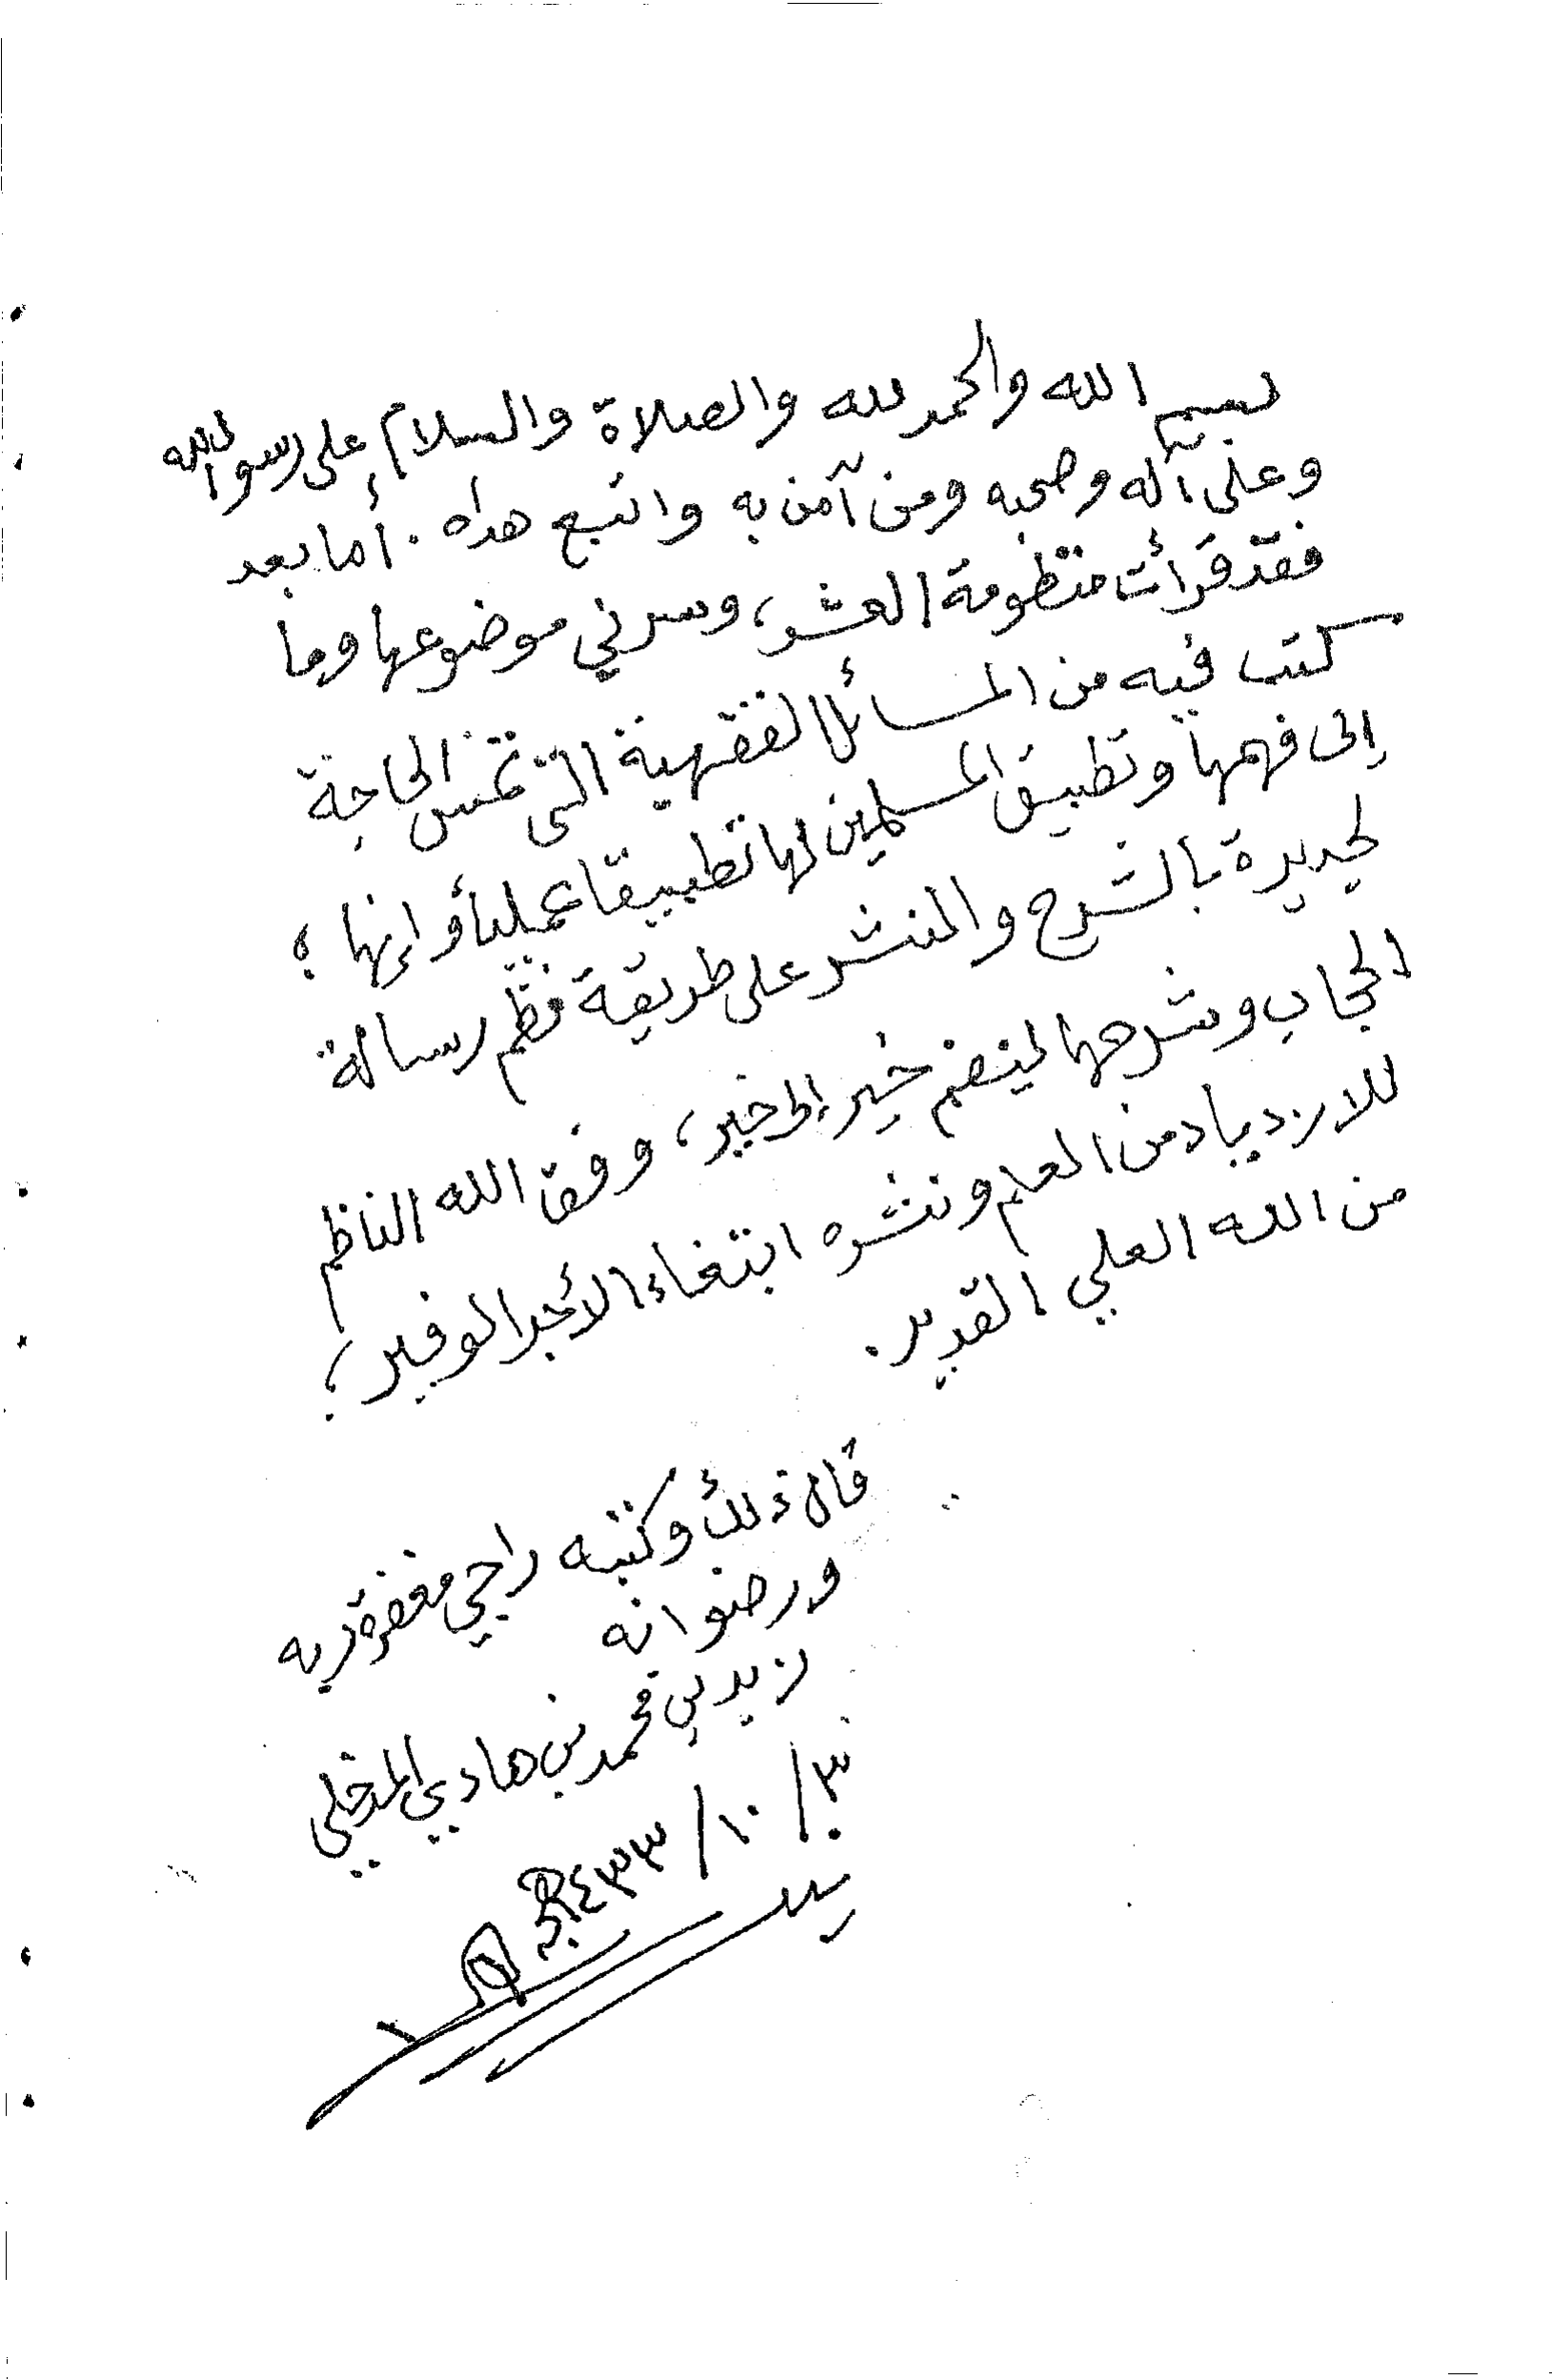 بسم الله والحمد لله والصلاة والسلام على رسول الله
وعلى آله وصحبه ومن آمن به واتبع هداه . أما بعد
فقد قرأت منظومة العشر، وسرني موضوعها وما
كتب فيه من المسائل الفقهية التي تمس الحاجة
إلى فهمها وتطبيق المسلمين لها تطبيقا عمليا وإنها ؛
لجديرة بالشرح والنشر على طريقة نظم رسالة
الحجاب وشرحها لينضم خير إلى خير، وفق الله الناظم
للازدياد من العلم ونشره ابتغاء الأجر الوفير ؛
من الله العلي القدير .
قال ذلك وكتبه راجي مغفرة ربه
ورضوانه
زيد بن محمد بن هادي المدخلي
٣٠/١٠/١٤٣٣هـ